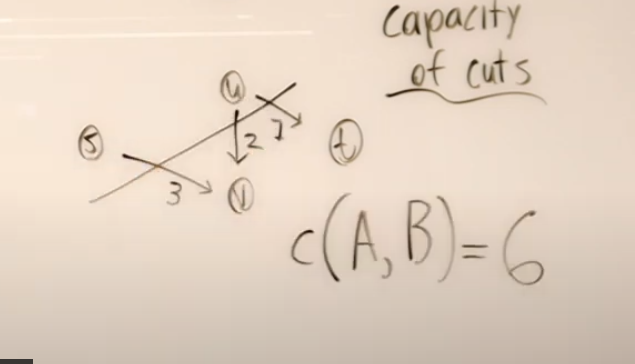 Capacity
of cuts
u
s
2
1
t
3
v
c(A,B)=6